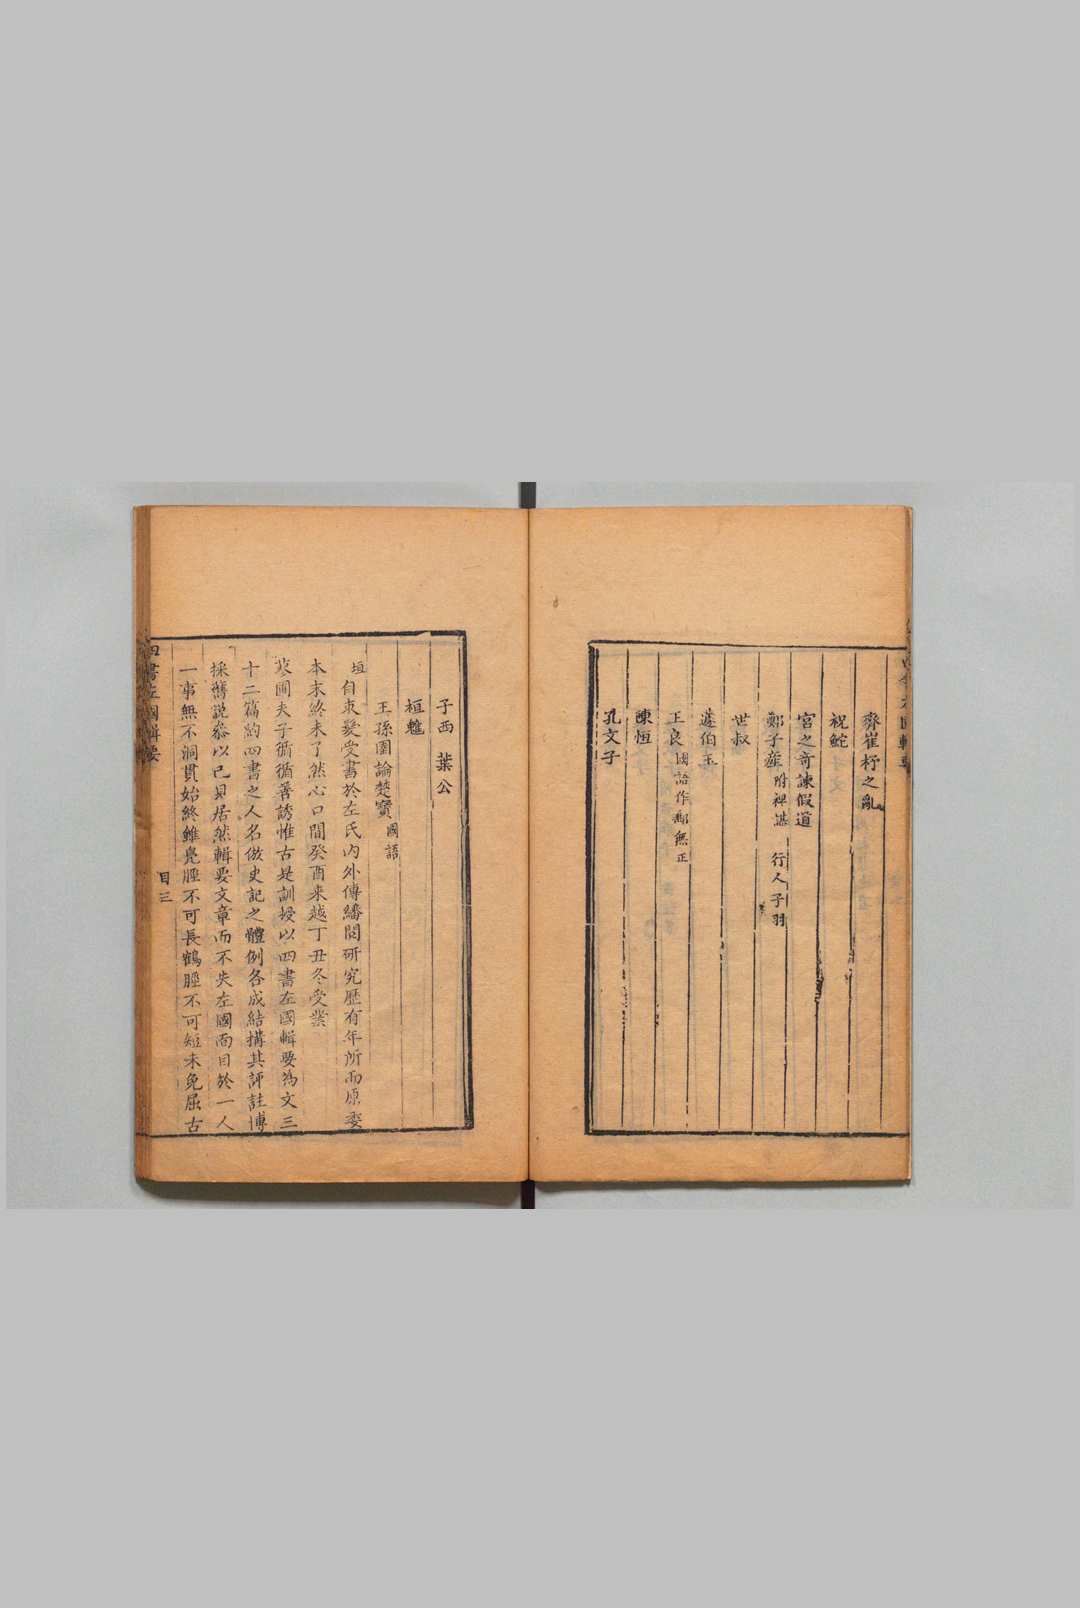 齊崔杼之亂
祝鮀
宮之奇諫假道
鄭子產 附裨諶 行人子羽
世叔
蘧伯玉
王良 國語作郵無正
陳恒
孔文子
子西 葉公
桓魋
王孫圉論楚寶 國語
垣自束髮受書於左氏內外傳繙閱研究歷有年所而原委
本末終未了然心口間癸酉來越丁丑冬受業
寒圃夫子循循善誘惟古是訓授以四書左國輯要為文三
十二篇約四書之人名倣史記之體例各成結搆其評註博
採舊說叅以已見居然輯要文章而不失左國面目於一人
一事無不洞貫始終雖鳧脛不可長鶴脛不可短未免屈古
四書左國輯要
目三